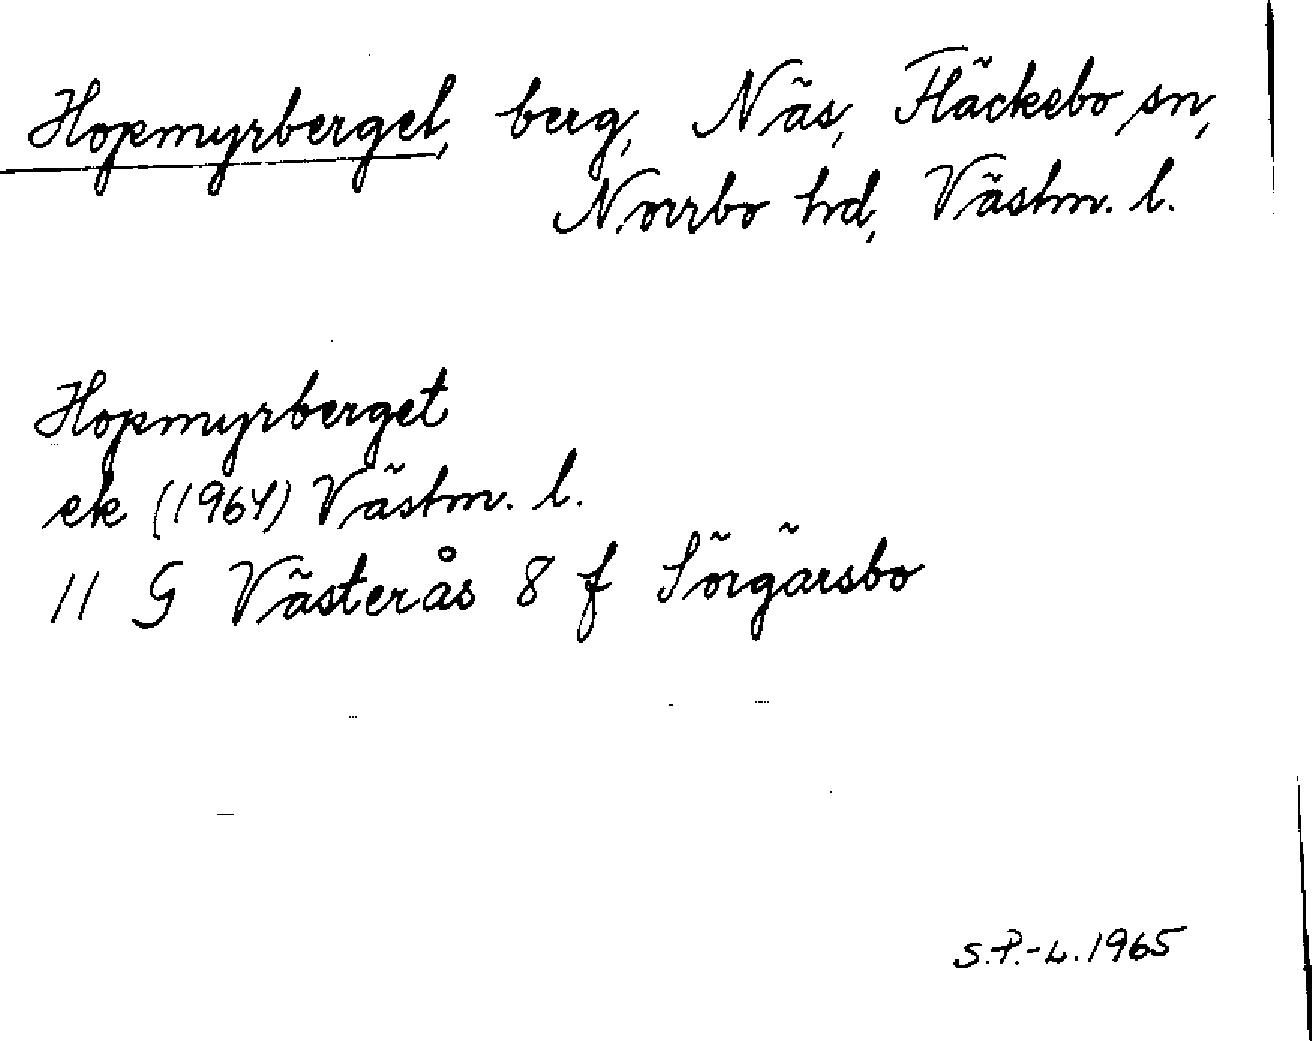 Hopmyrberget, berg, Näs, Fläckebo sn,
Norrbo hd, Västm. l.
Hopmyrberget
ek (1964) Västm. l.
11 G Västerås 8 f Sörgärsbo
S.P.-L. 1965